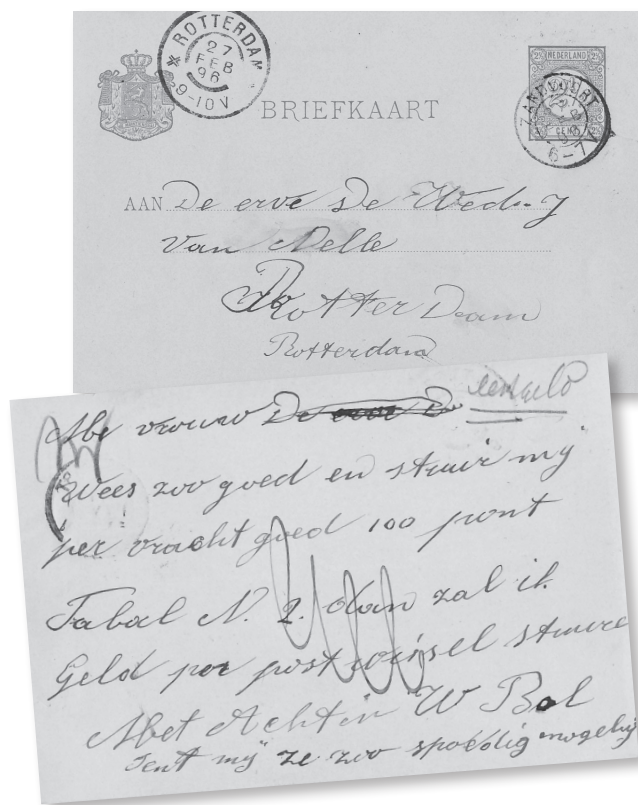 ROTTERDAM
27
FEB
96
9-10V
BRIEFKAART
NEDERLAND
2½
2½
CENT
ZANDVOORT
6-7V
AAN De erve De Wed. J
van Nelle
Rotterdam
Rotterdam
Me vrouw De erve D
Wees zoo goed en stuur mij
per vracht goed 100 pont
Tabak N. 2. dan zal ik
Geld per post wissel sture
Met Achtin W Bol
Sent mij ze zoo spoedig mogelij